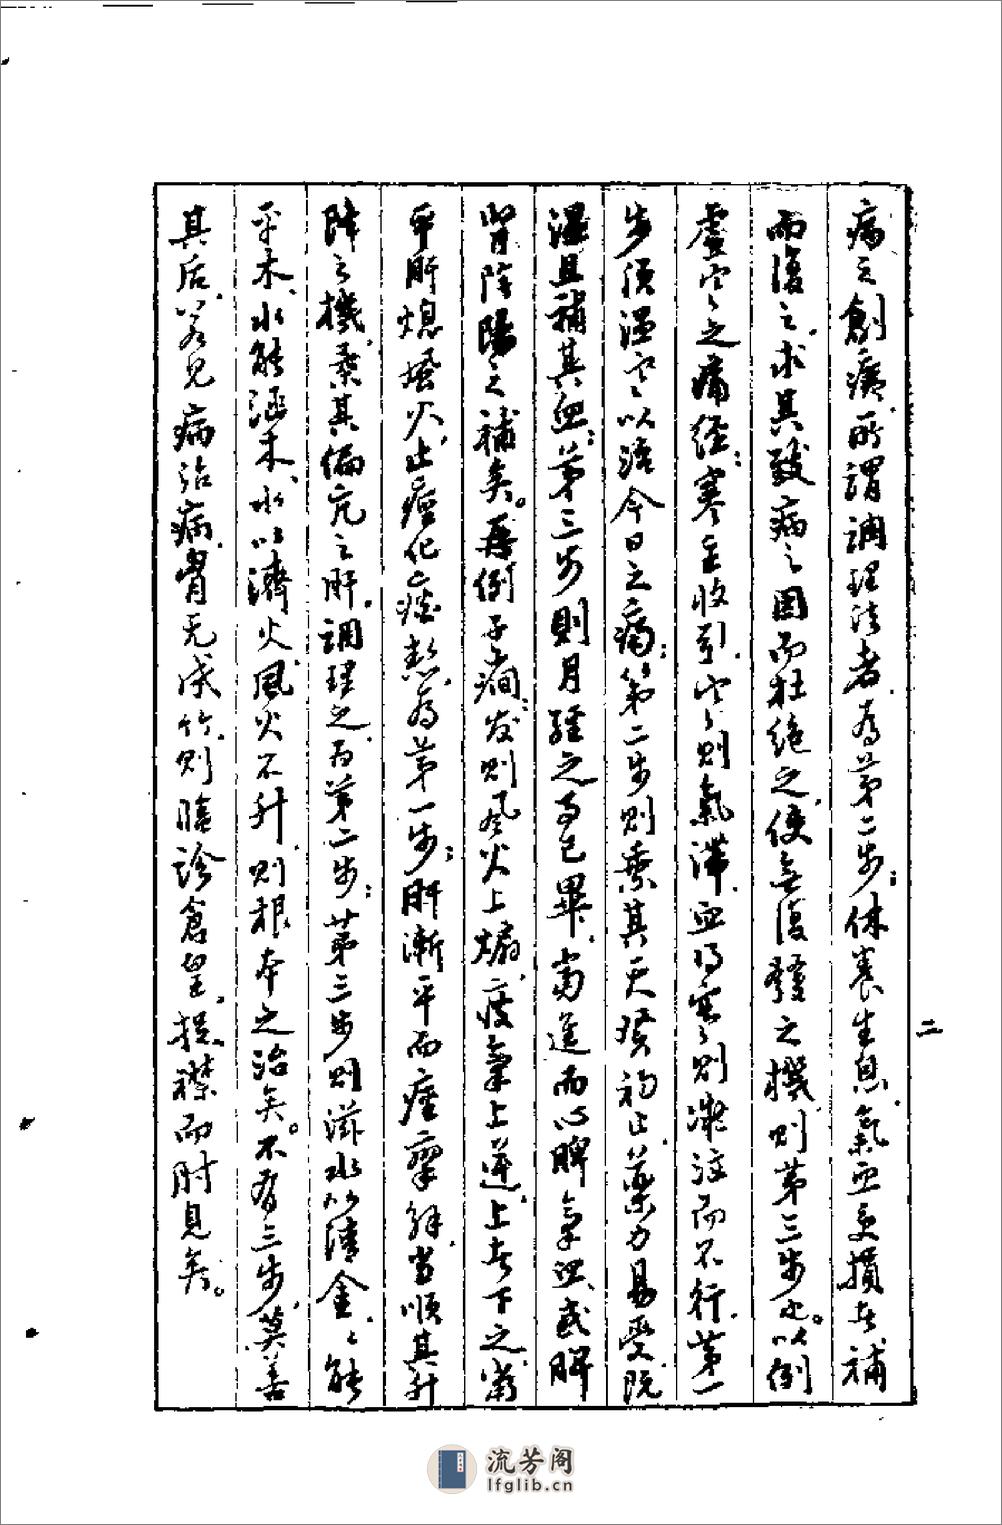 病之創痍，所謂調理法者，為第二步；休養生息，氣血受損者補
而復之，求其致病之因而杜絕之，使無復發之機，则第三步也。以例
虛寒之痛經：寒主收引，寒则氣滞，血得寒则凝泣而不行，第一
步須溫寒以治今日之痛；第二步则乘其天癸初止，藥力易受，既
溫且補其血；第三步則月經之事已畢，當進而心脾氣血、或脾
腎陰陽之補矣。再例子癎：发则风火上煽，痰氣上逆，上者下之，當
平肝熄風火，止痙化痰熱，為第一步；肝漸平而痙攣解，當順其升
降之機，柔其偏亢之肝，調理之，為第二步；第三步则滋水以清金，金能
平木，水能涵木，水以濟火，風火不升，则根本之治矣。不有三步，莫善
其后，若见病治病，胷无成竹，则臨診倉皇，捉襟而肘見矣。
二
流芳阁
lfglib.cn